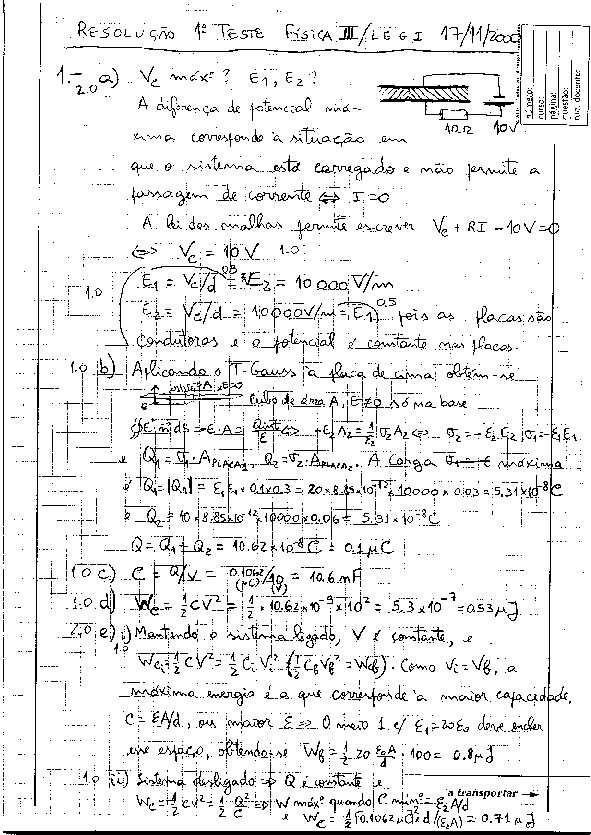 RESOLUÇÃO 1º TESTE FÍSICA III/LEGI 17/11/2000
número:
curso:
página:
questão:
nu. docente:
1.- 2.0 a) Vc máxº? E1, E2?
A diferença de potencial má-
xima corresponde à situação em
10Ω 10V
que o sistema está carregado e não permite a
passagem de corrente ⇔ I=0
A lei das malhas permite escrever Vc + RI - 10V = 0
⇔ Vc = 10V 1.0
1.0 E1 = Vc/d = E2 = 10000 V/m
E2 = Vc/d = 10000V/m = E1 0,5 pois as placas são
condutoras e o potencial é constante nas placas.
1.0 b) Aplicando o T. Gauss à placa de cima, obtém-se
cubo de área A, E≠0 só na base
e Q1 = σ1 · APLACA1, Q2 = σ2 · APLACA2. A carga máxima
é Q1 = |Q1| = ε1 E1 × 0.1×0.3 = 20×8.85×10⁻¹²×10000×0.03 = 5.31×10⁻⁸C
e Q2 = 10×8.85×10⁻¹²×10000×0.06 = 5.31×10⁻⁸C
Q = Q1 + Q2 = 10.62×10⁻⁸C = 0.1μC
1.0 c) C = Q/V = 0.1062/10 = 10.6 nF
(μC) (V)
1.0 d) Wc = ½CV² = ½ × 10.62×10⁻⁹×10² = 5.3×10⁻⁷ = 0.53μJ
2.0 e) i) Mantendo o sistema ligado, V é constante, e
1.0 Wci = ½CV² = ½ Ci Vi² (½ Cf Vf² = Wcf). Como Vi = Vf, a
máxima energia é a que corresponde à maior capacidade,
C = εA/d, ou maior ε ⇒ O meio 1 c/ ε1 = 20ε0 deve encher
esse espaço, obtendo-se Wf = ½ 20 ε0A/d · 100 = 0.8μJ
1.0 ii) Sistema desligado ⇒ Q é constante e
a transportar →
Wc = ½CV² = ½ Q²/C ⇒ W máxº quando C mínº = ε2A/d
e Wc = ½ (0.1062μC)² × d/(ε2A) = 0.71 μJ